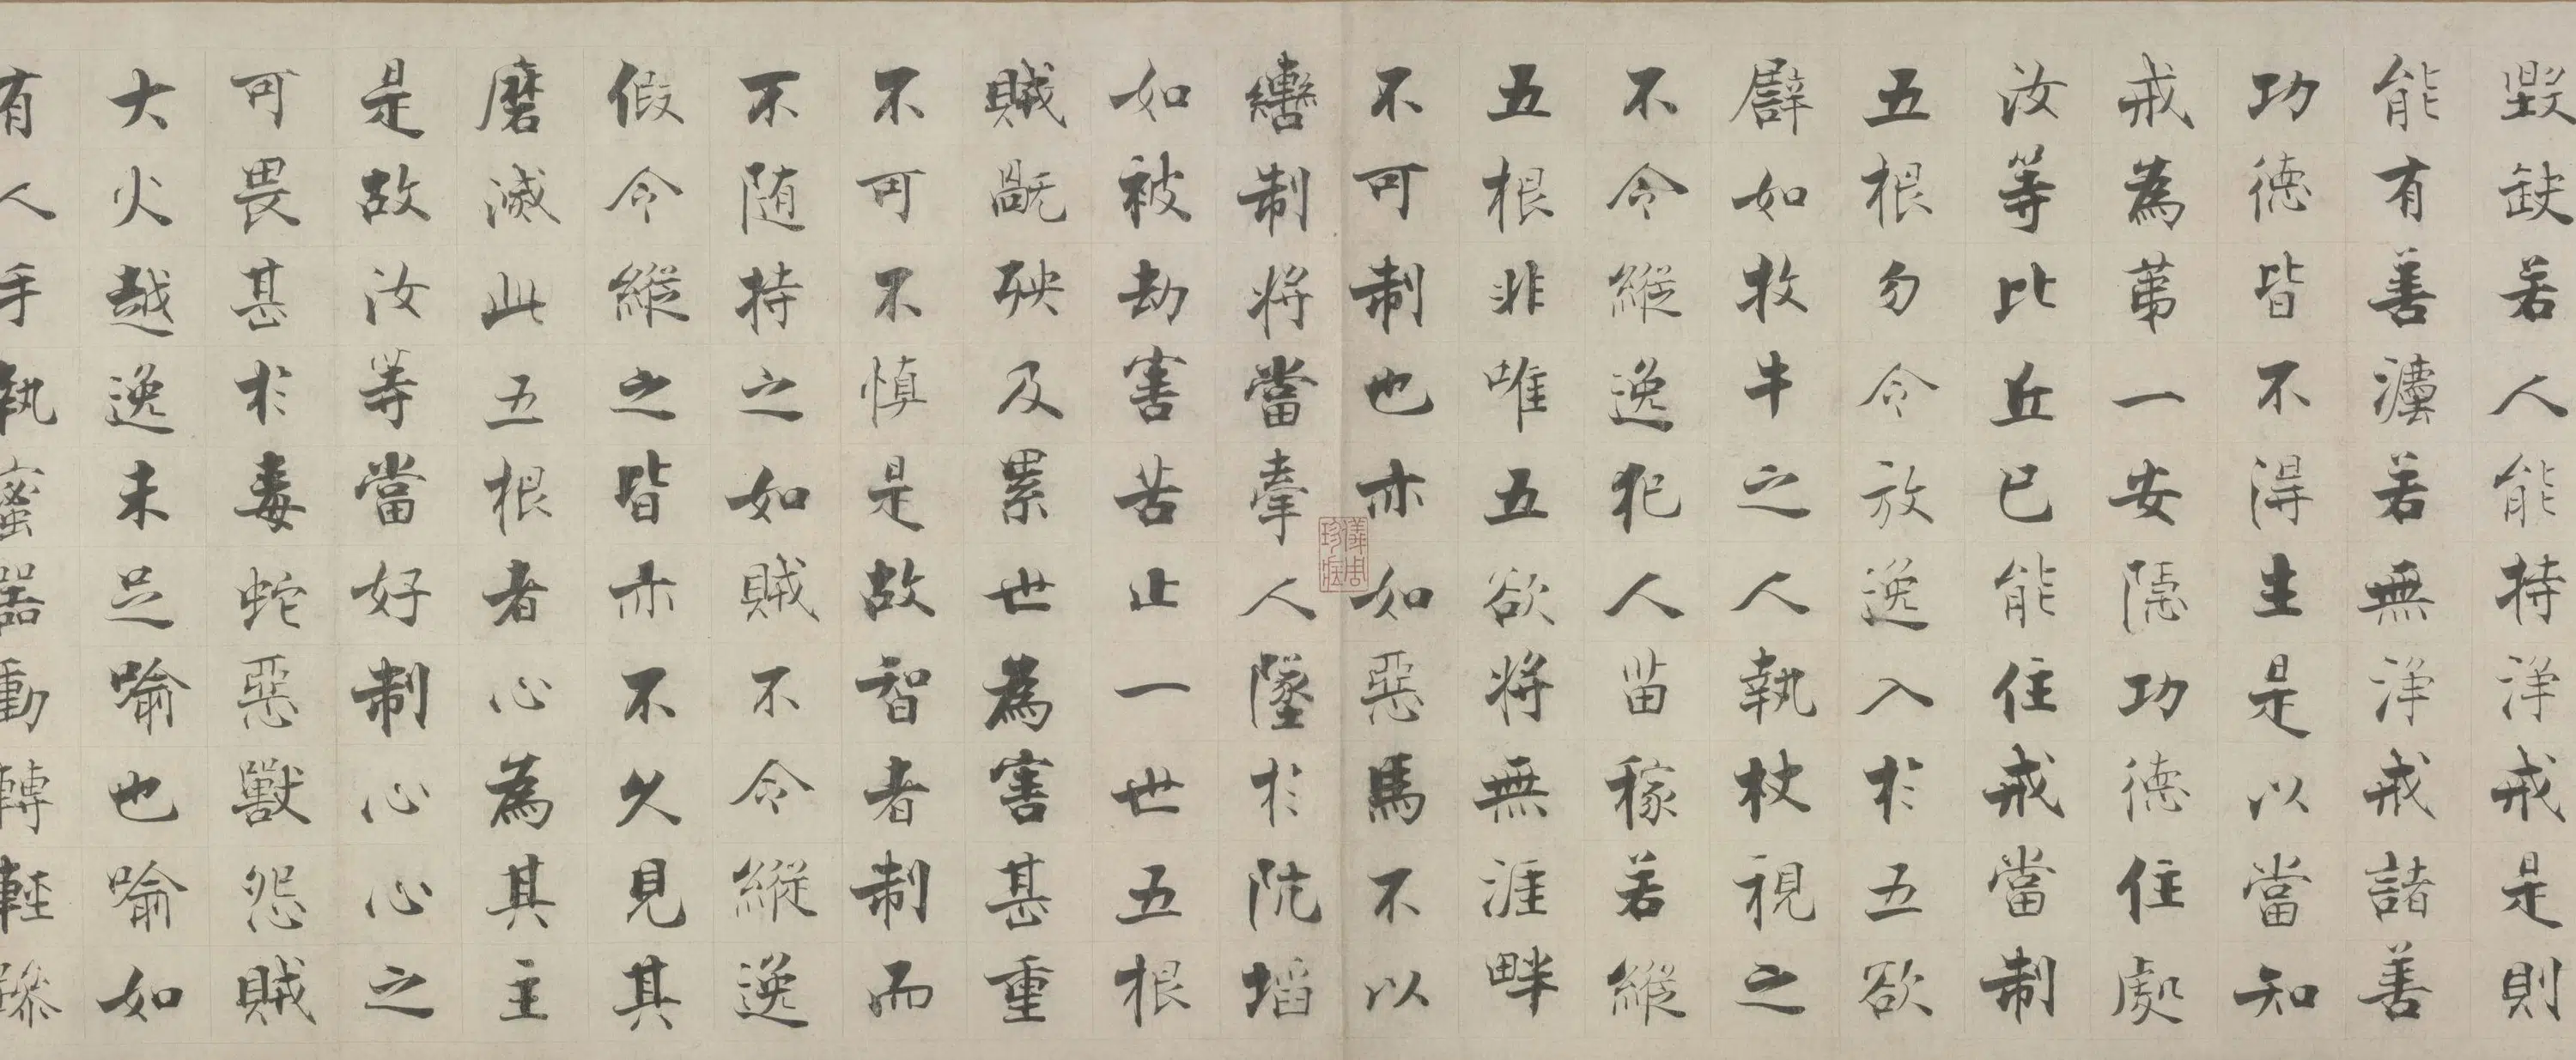 毀缺若人能持淨戒是則
能有善法若無淨戒諸善
功德皆不得生是以當知
戒為第一安隱功德住處
汝等比丘已能住戒當制
五根勿令放逸入於五欲
譬如牧牛之人執杖視之
不令縱逸犯人苗稼若縱
五根非唯五欲將無涯畔
不可制也亦如惡馬不以
轡制將當牽人墜於阬埳
如被劫害苦止一世五根
賊禍殃及累世為害甚重
不可不慎是故智者制而
不隨持之如賊不令縱逸
假令縱之皆亦不久見其
磨滅此五根者心為其主
是故汝等當好制心心之
可畏甚於毒蛇惡獸怨賊
大火越逸未足喻也喻如
有人手執蜜器動轉輕躁